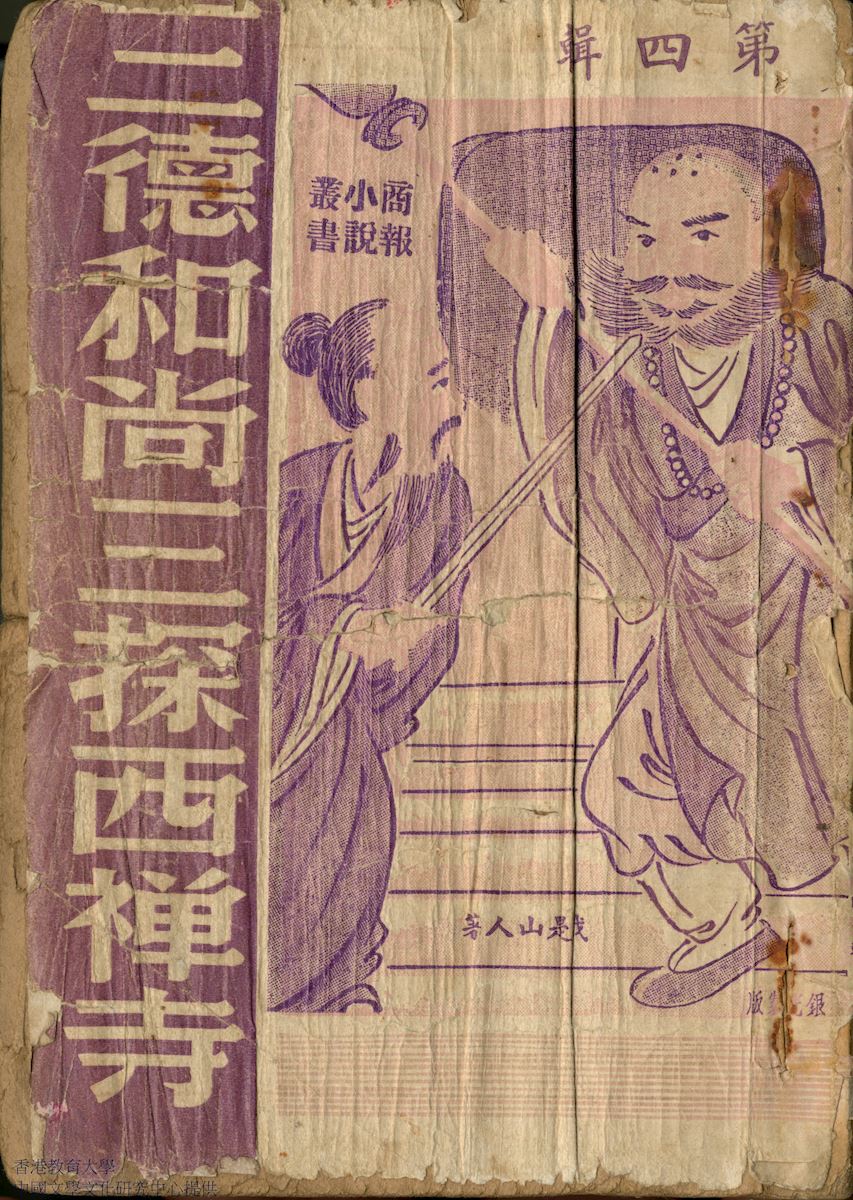 第四輯
商報
小說
叢書
三德和尚三探西禅寺
我是山人著
銀 製版
香港教育大學
中國文學文化研究中心提供